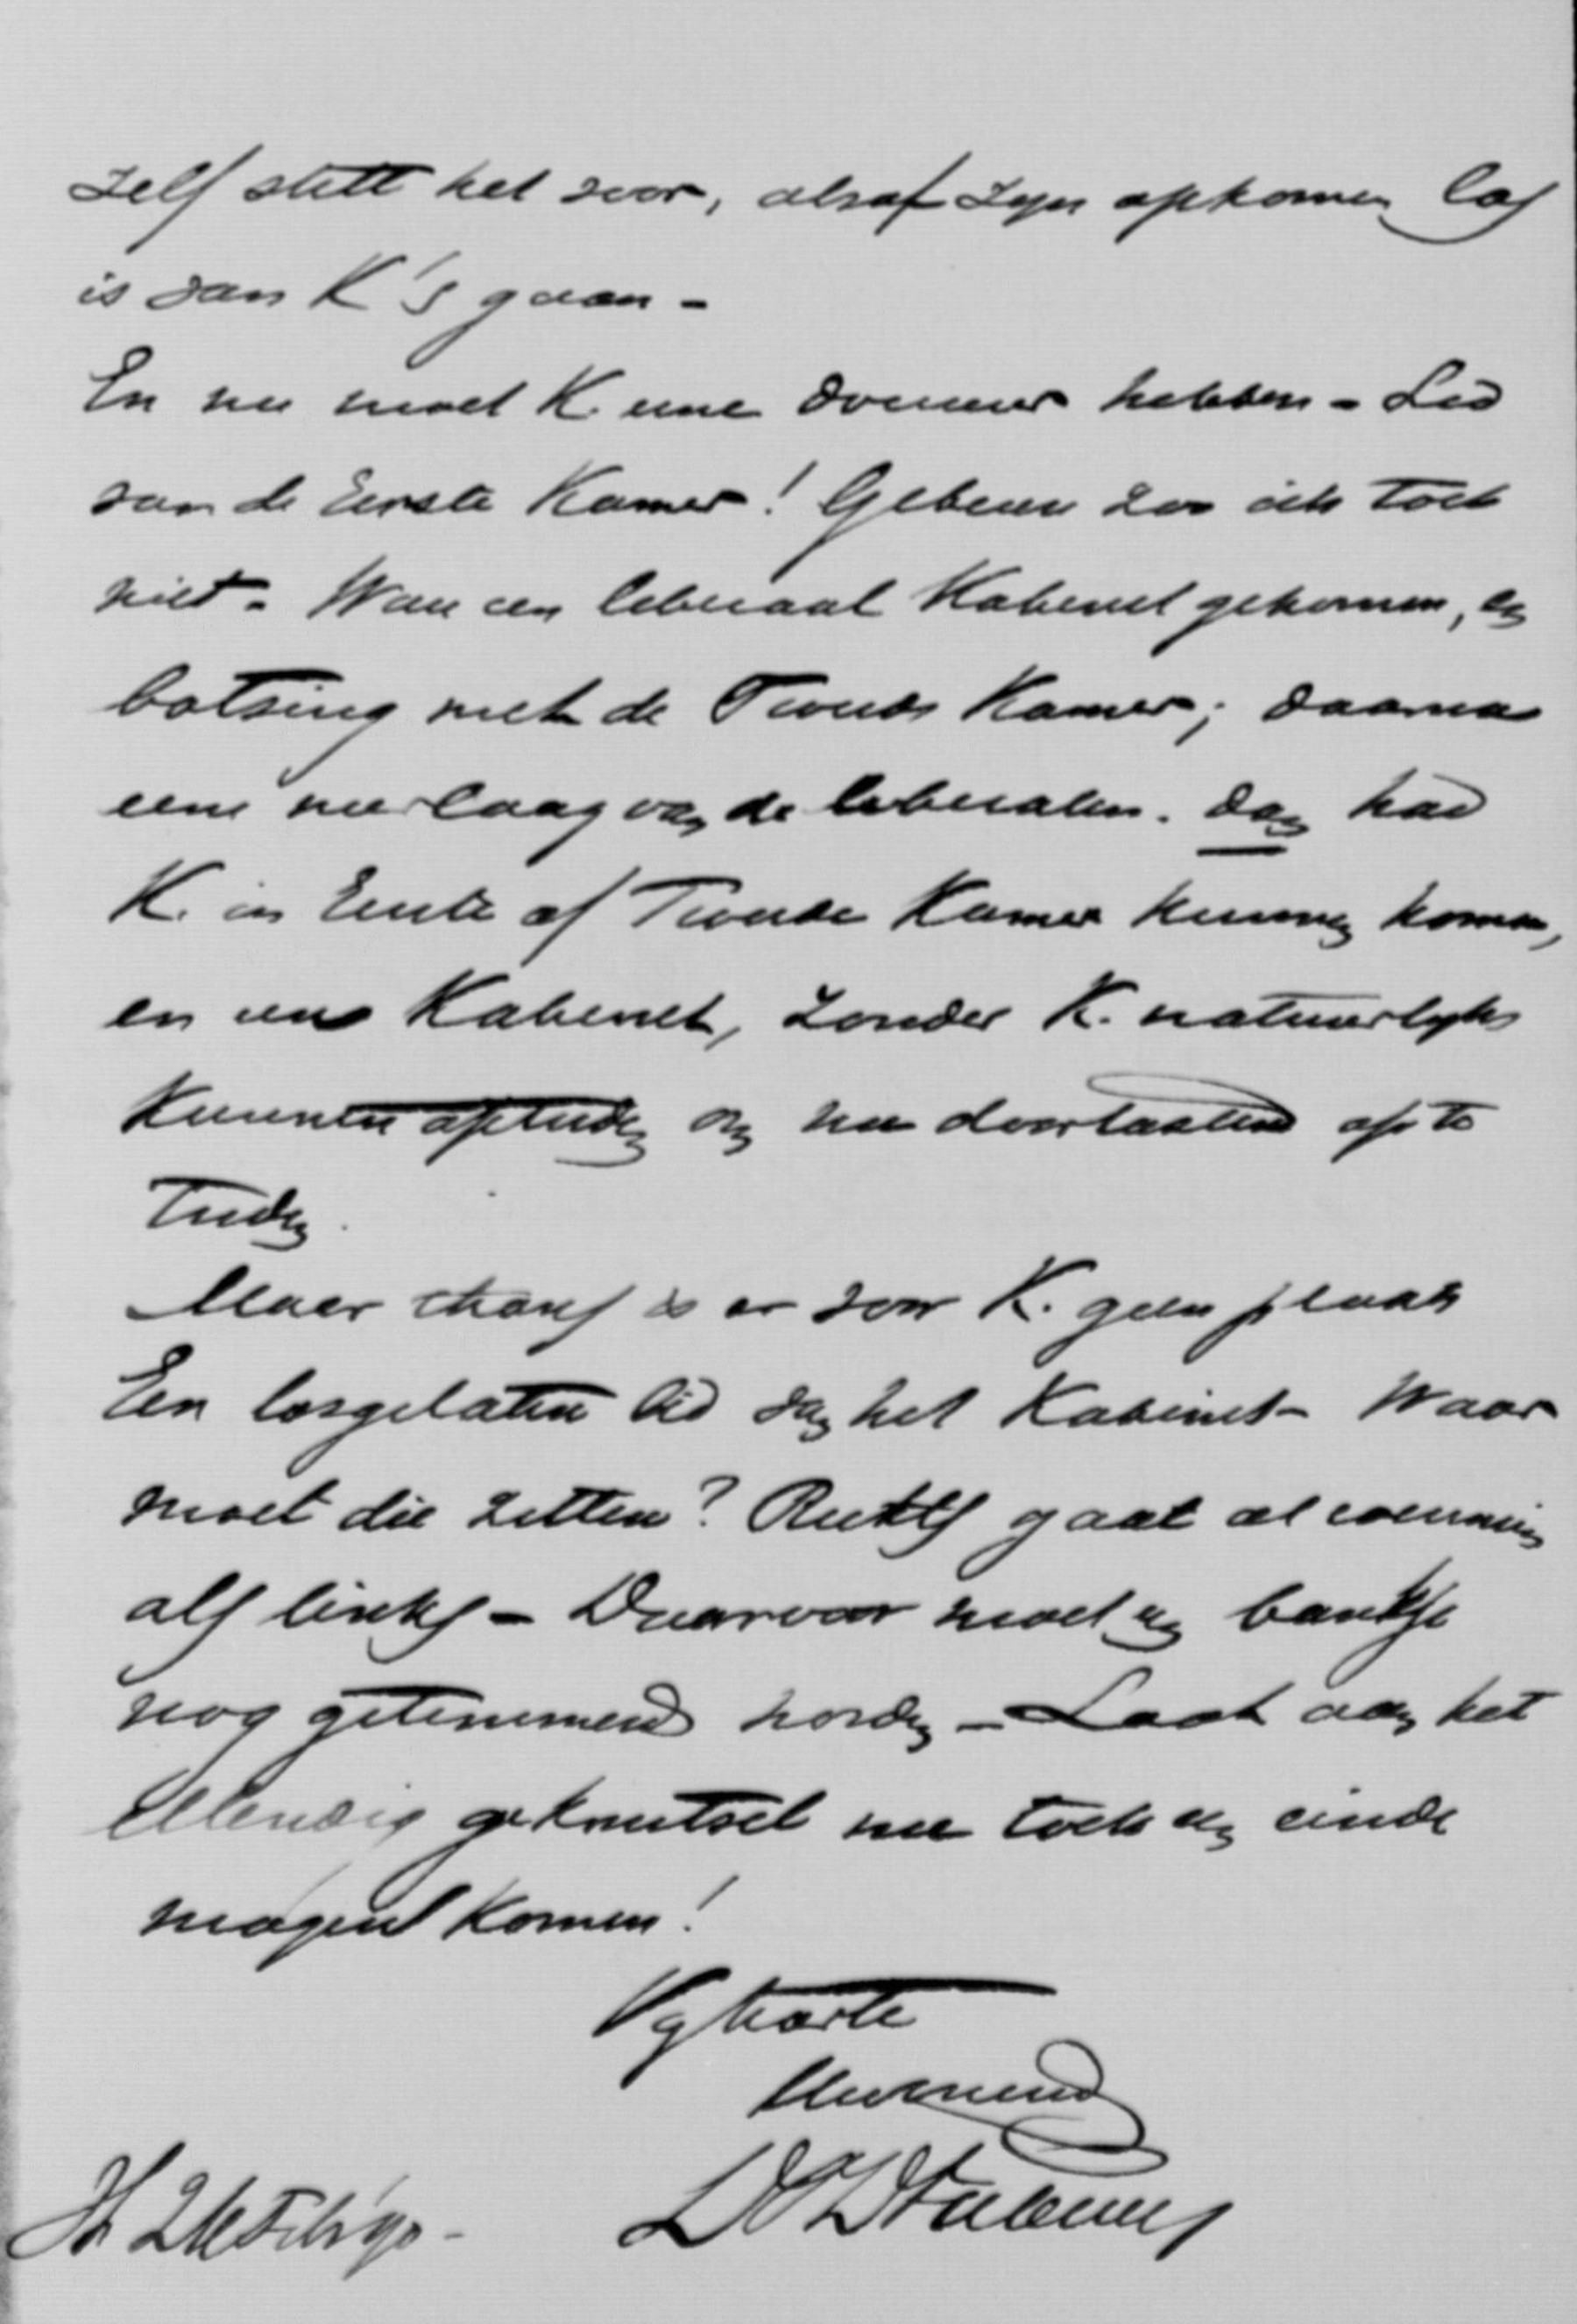 zelf stelt het voor, alsof zyn opkomen los
is van K's gaan -
En nu moet K. eene douceur hebben - Lid
van de Eerste Kamer! Gebeure zoo iets toch
niet. Ware een liberaal Kabinet gekomen, en
botsing met de Tweede Kamer; daarna
eene neerlaag van de liberalen. dan had
K. in Eerste of Tweede Kamer kunnen komen,
en een Kabinet, zonder K. natuurlyk
kunnen optreden om nu doortastend op te
treden.
Maar thans is er voor K. geen plaats
Een losgelaten lid van het Kabinet - Waar
moet die zitten? Rechts gaat al evenmin
als links - Daarvoor moet een bankje
nog getimmerd worden - Laat aan het
ellendig geknutsel nu toch een einde
mogen komen!
Hg 2 Febr 90 -